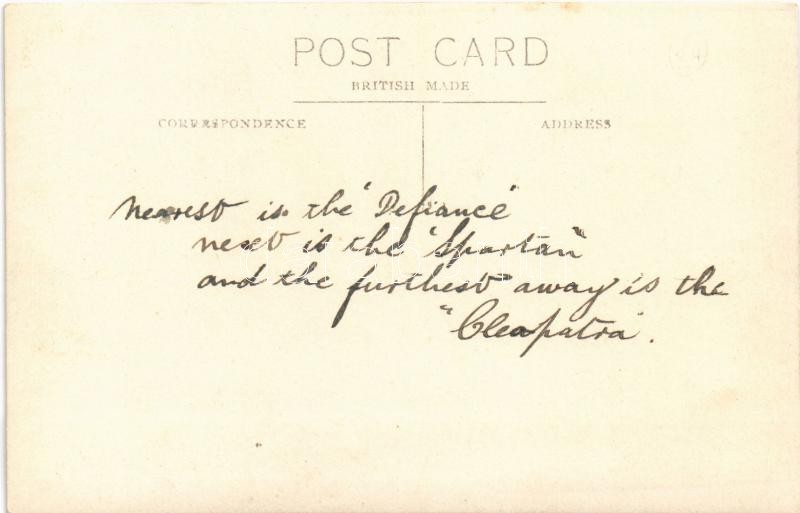 POST CARD
BRITISH MADE
CORRESPONDENCE
ADDRESS
Nearest is the "Defiance"
next is the "Spartan"
and the furthest away is the
"Cleopatra".